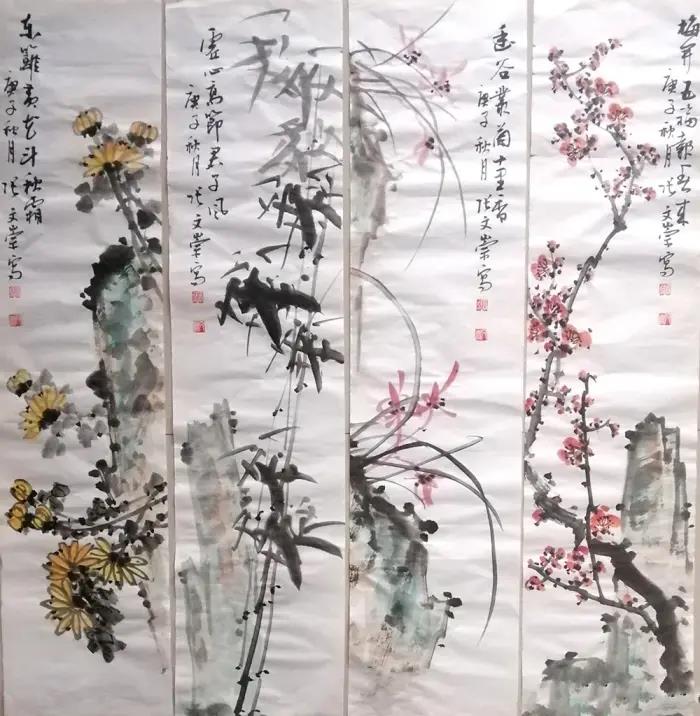 梅开五福報春来
庚子秋月张文崇寫
幽谷叢蘭十里香
庚子秋月张文崇寫
虚心高節君子风
庚子秋月张文崇寫
东籬黄花斗秋霜
庚子秋月张文崇寫